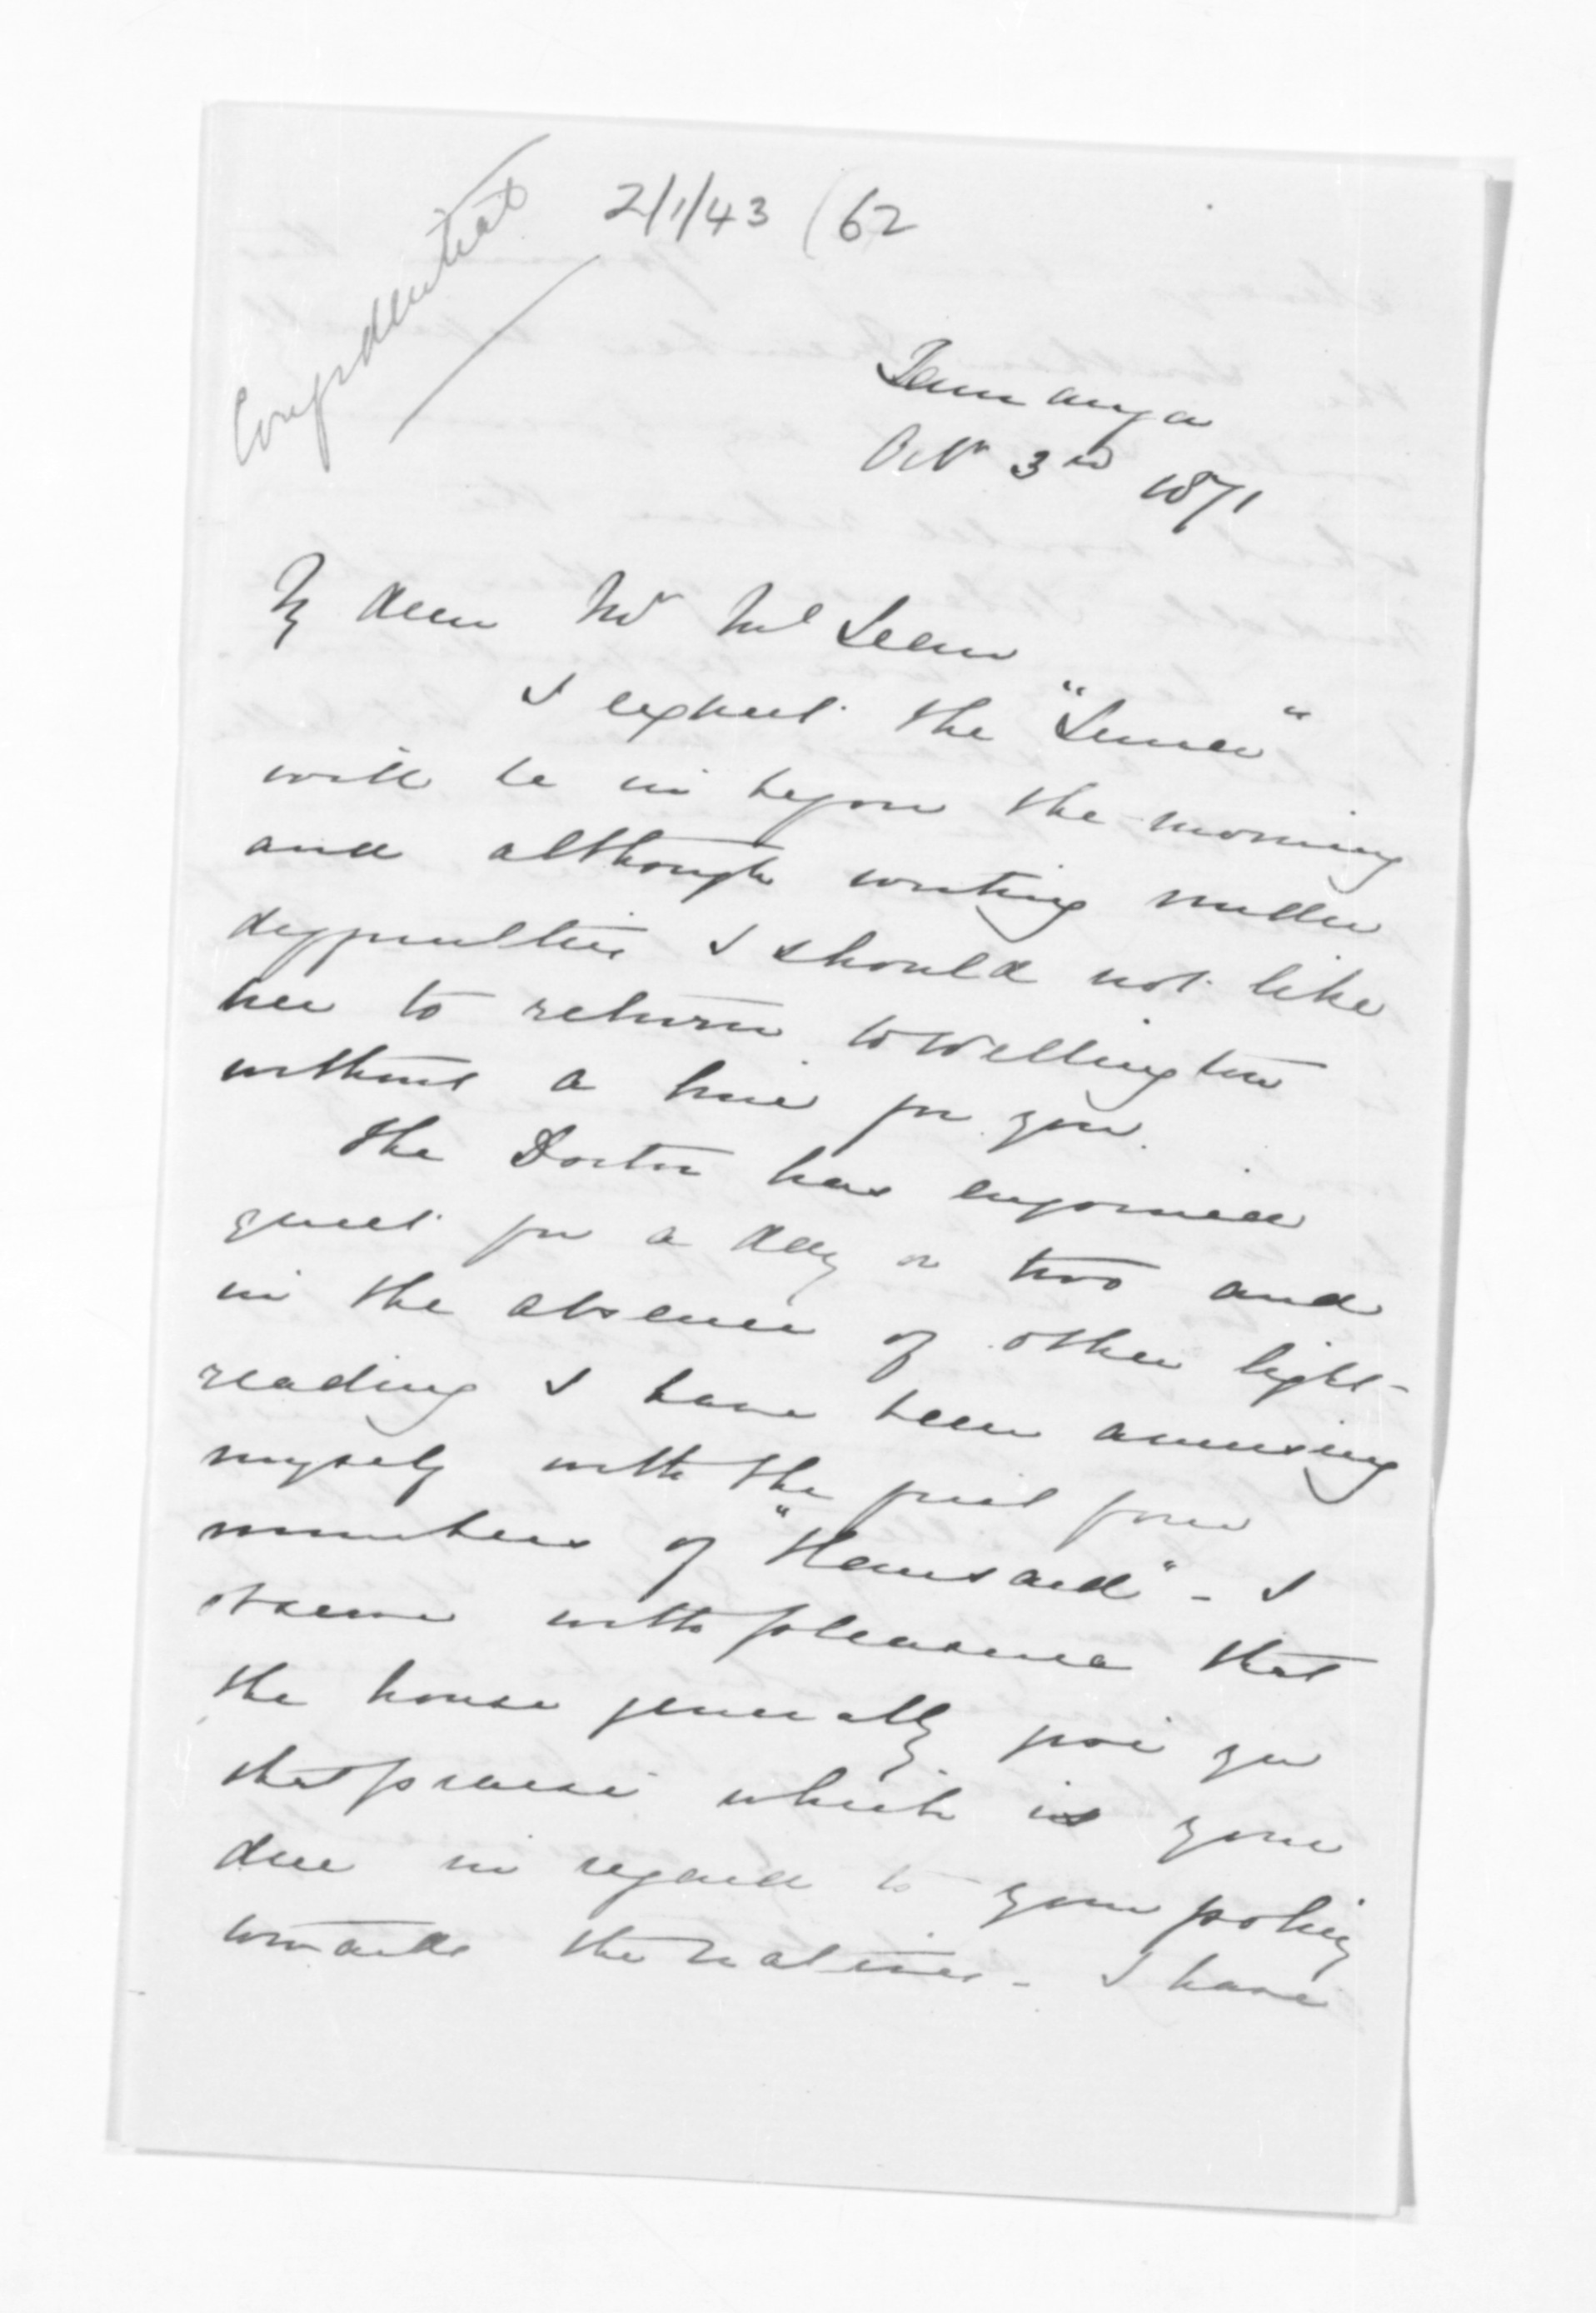 Confidential
2/1/43 (62
Tauranga
Octr 3rd 1871
My dear Mr McLean
I expect the "Luna"
will be in before the morning
and although writing under
difficulties I should not like
her to return to Wellington
without a line for you.
The Doctor has enjoined
quiet for a day or two and
in the absence of other light
reading I have been amusing
myself with the first four
numbers of "Hansard" - I
observe with pleasure that
the house generally give you
that praise which is your
due in regard to your policy
towards the natives - I have